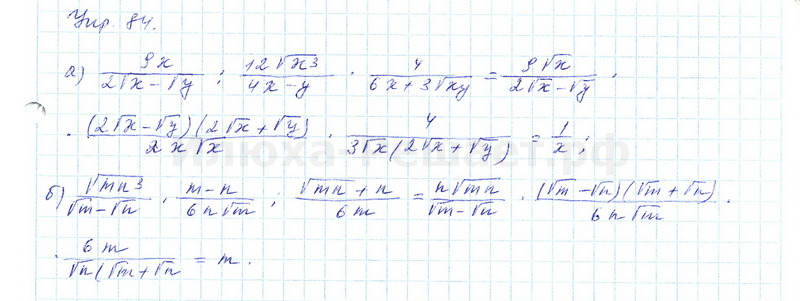 Упр. 84.
а) 9x/(2√x − √y) : 12√x3/(4x − y) · 4/(6x + 3√xy) = 9√x/(2√x − √y) ·
· (2√x − √y)(2√x + √y)/(2x√x) · 4/(3√x(2√x + √y)) = 1/x ;
б) √mn3/(√m − √n) · (m − n)/(6n√m) : (√mn + n)/(6m) = n√mn/(√m − √n) · (√m − √n)(√m + √n)/(6n√m) ·
· 6m/(√n(√m + √n = m .